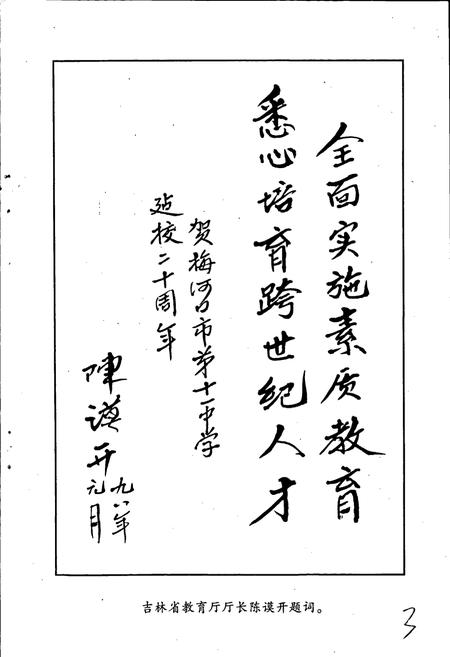 全面实施素质教育
悉心培育跨世纪人才
贺梅河口市第十一中学
建校二十周年
陳谟开
九八年
元月
吉林省教育厅厅长陈谟开题词。
3